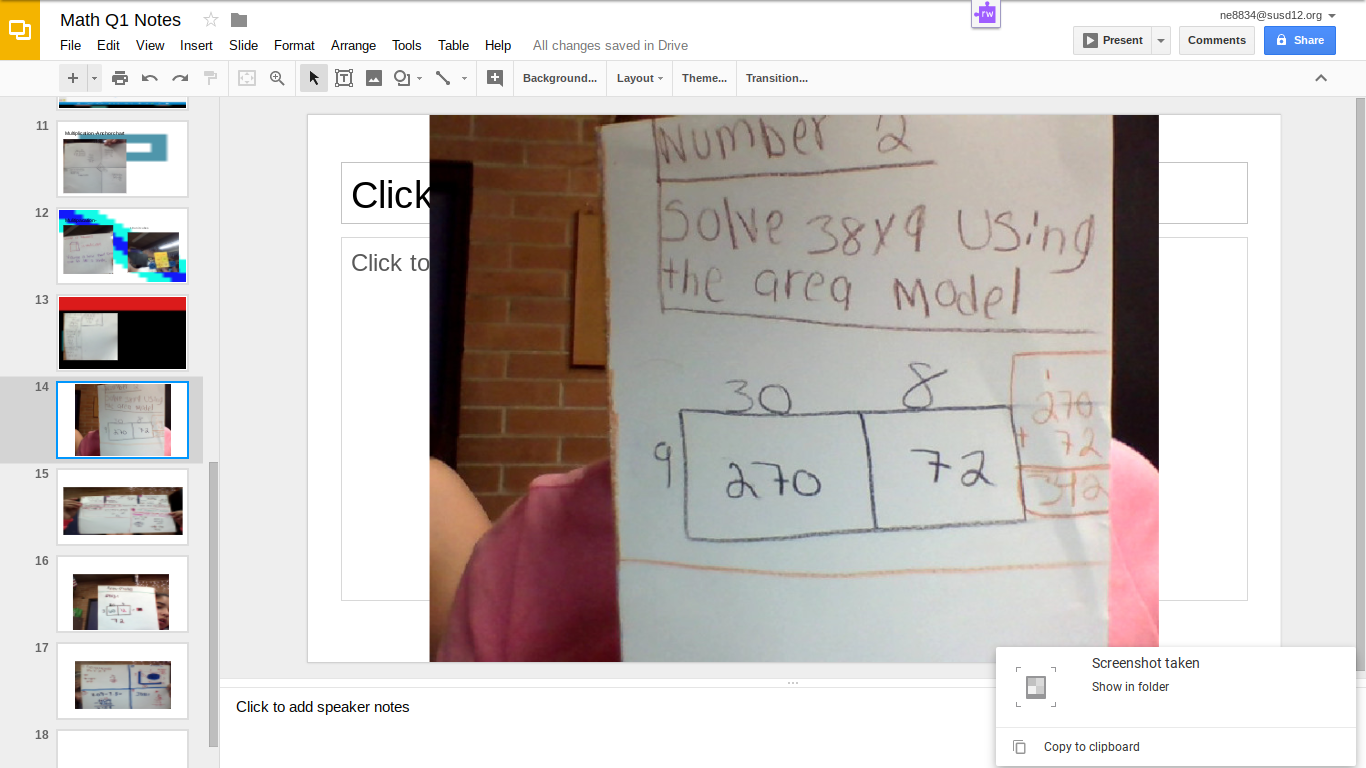 Math Q1 Notes
rw
ne8834@susd12.org
File Edit View Insert Slide Format Arrange Tools Table Help All changes saved in Drive
Present Comments Share
Background... Layout Theme... Transition...
11
Multiplication Anchorchart
12
13
14
15
16
17
18
Click
Click to
Number 2
Solve 38x9 Using
the area Model
30 8
9 270 72
1
270
+ 72
342
Click to add speaker notes
Screenshot taken
Show in folder
Copy to clipboard